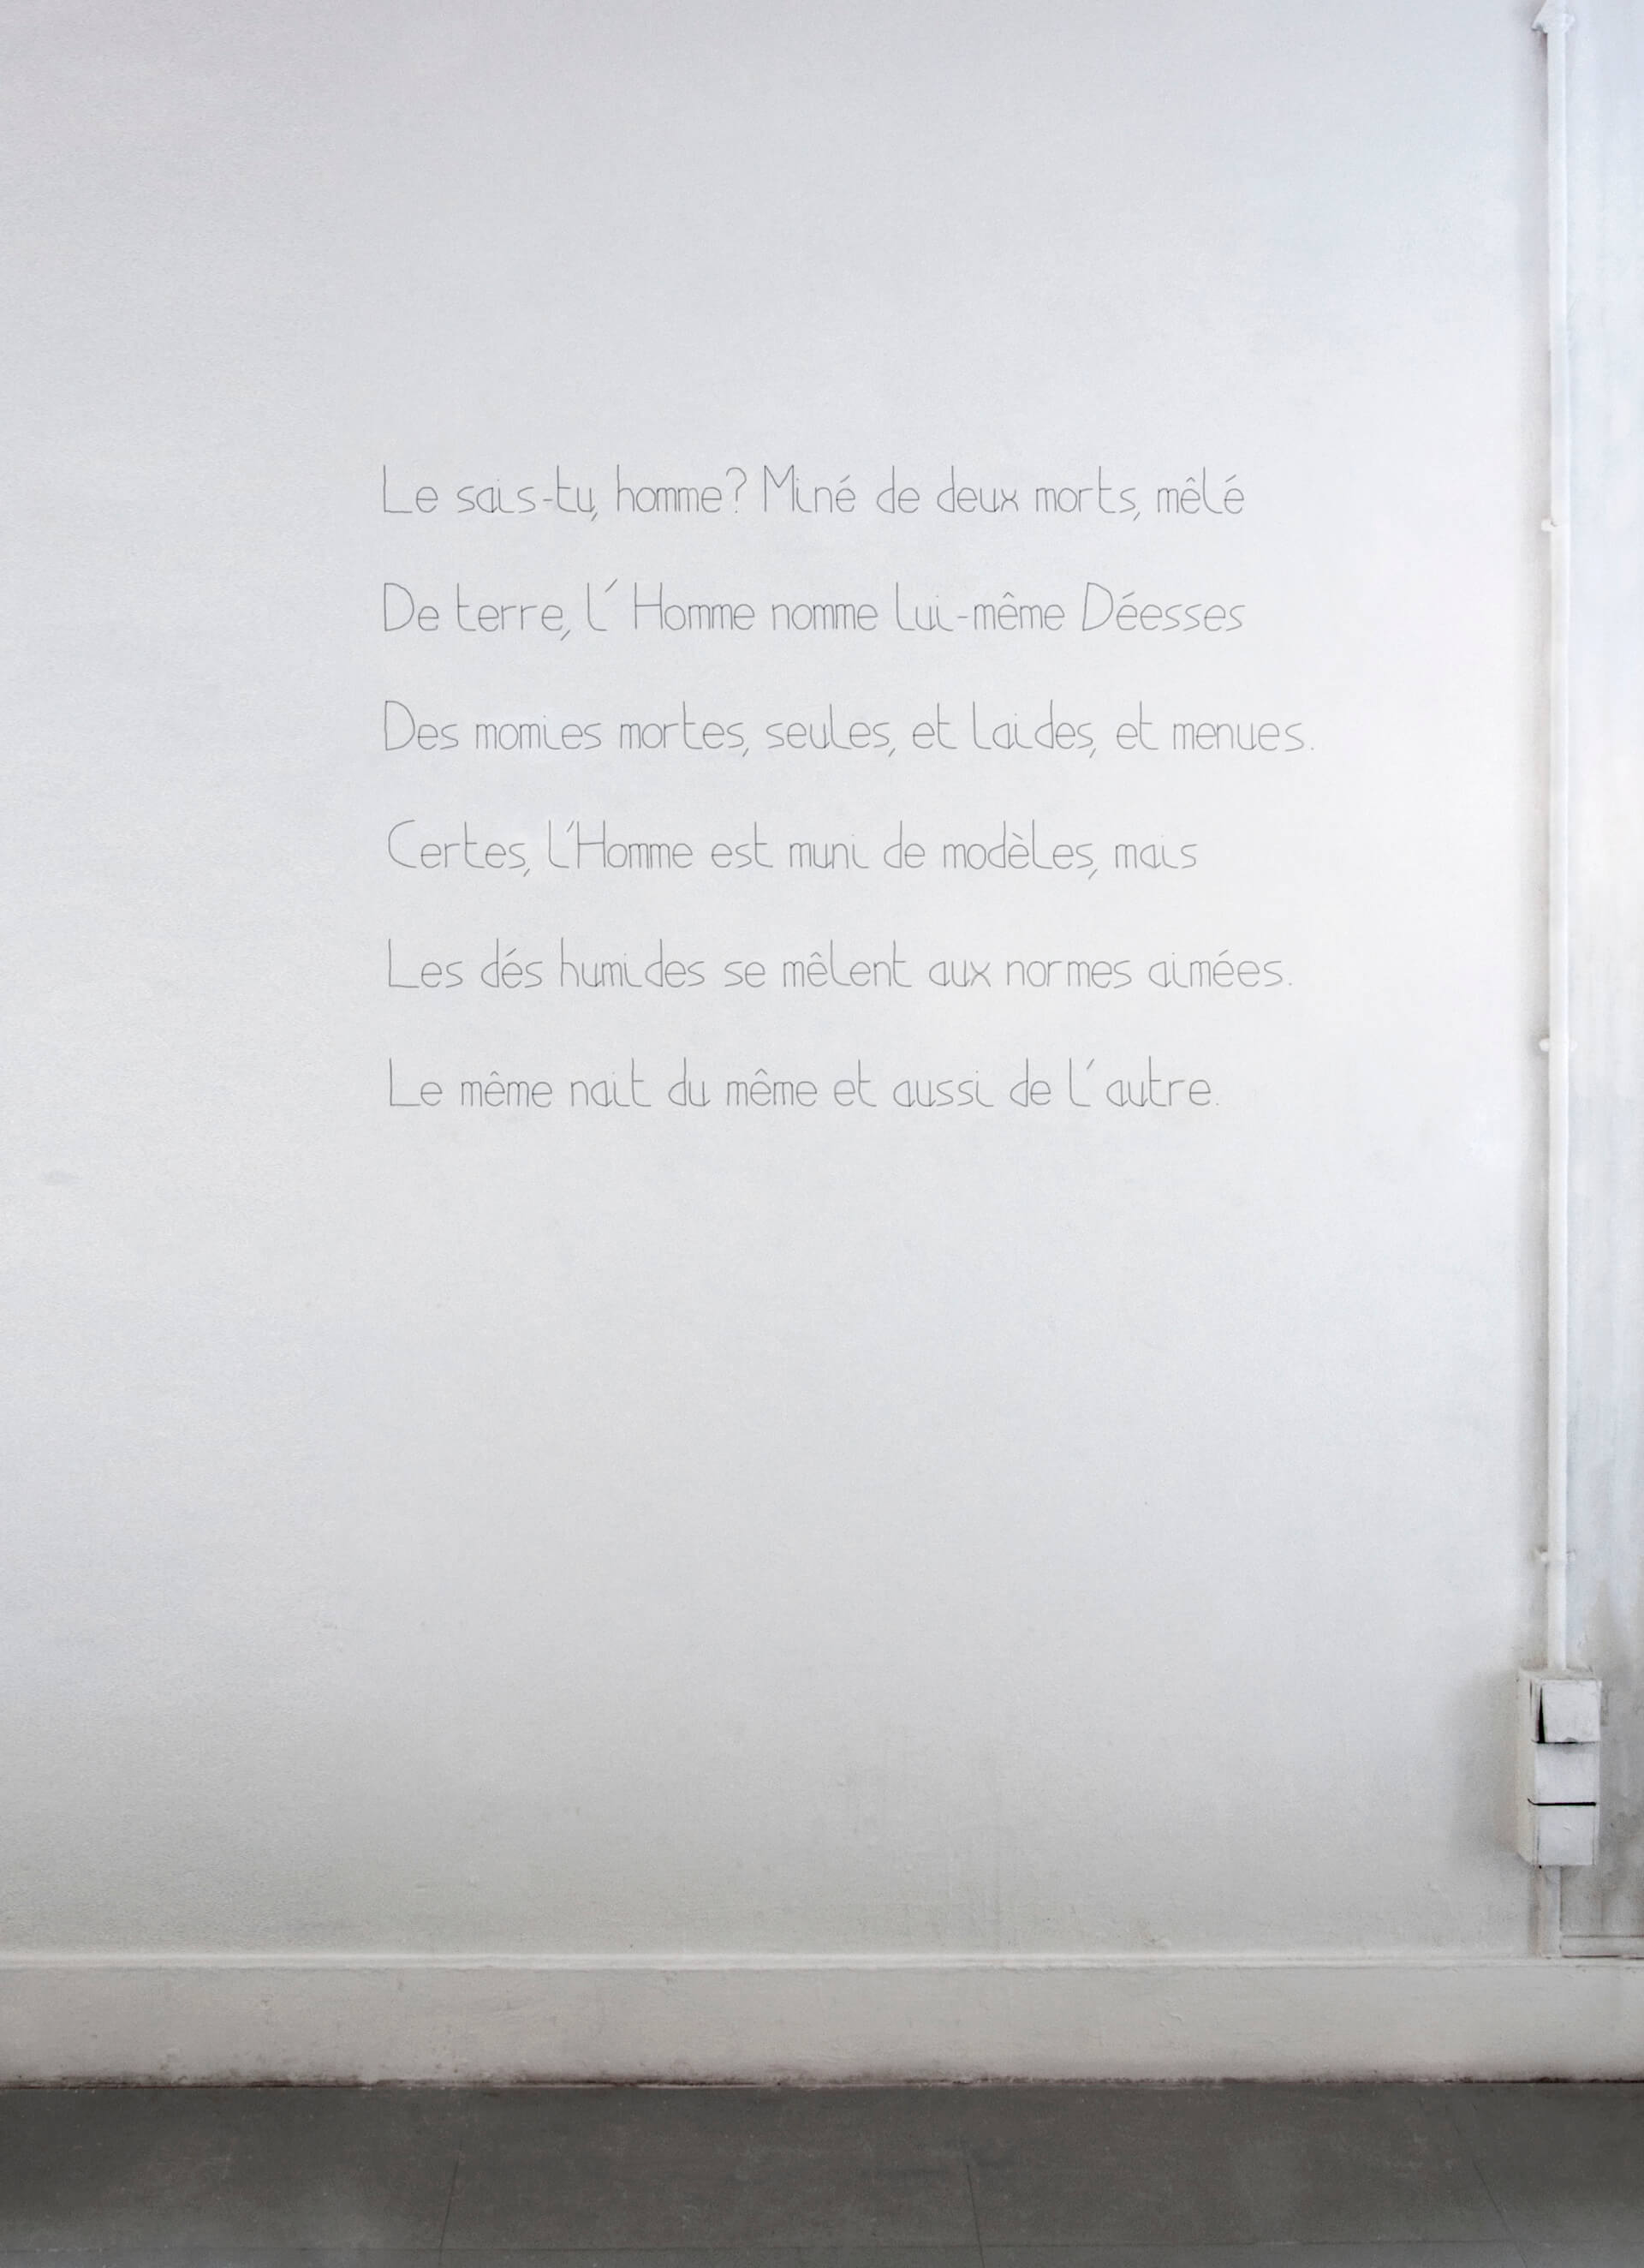 Le sais-tu, homme? Miné de deux morts, mêlé
De terre, l' Homme nomme lui-même Déesses
Des momies mortes, seules, et laides, et menues.
Certes, l'Homme est muni de modèles, mais
Les dés humides se mêlent aux normes aimées.
Le même nait du même et aussi de l' autre.